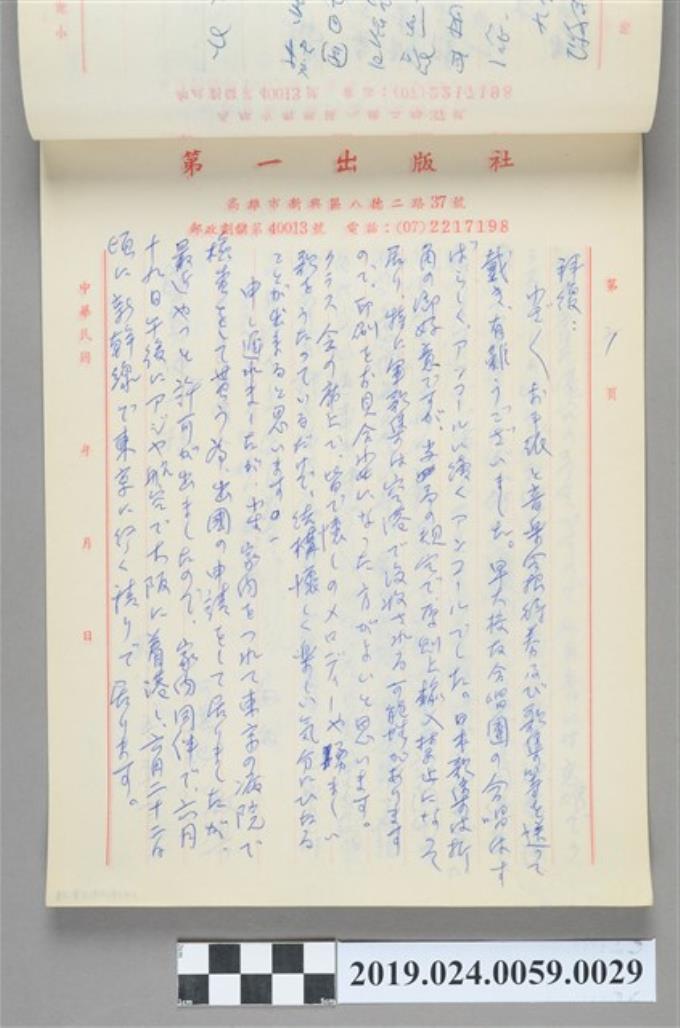 第一出版社
高雄市新興區八德二路37號
郵政劃撥第40013號 電話：(07)2217198
第 頁
拝復：
お手紙と音楽会招待券及び歌集等を送って
戴き、有難うございました。早大校友合唱団の合唱はす
ばらしく、アンコールに續くアンコールでした。日本歌集は折
角の御好意ですが、当局の規定で原則上輸入禁止になって
居り、特に軍歌集は空港で没收される可能性があります
ので、印刷をお見合せになった方がよいと思います。
クラス会の席上で、皆で懐しのメロディーや勇ましい
歌をうたっているだけで、結構懐しく楽しい気分にひたる
ことが出来ると思います。
申し遅れましたが、小生家内をつれて東京の病院で
検査をして貰う為、出國の申請をして居りましたが、
最近やっと許可が出ましたので、家内同伴で、六月
十九日午後にアジヤ航空で大阪に着港し、六月二十二日
頃に新幹線で東京に行く積りで居ります。
中華民國 年 月 日
2019.024.0059.0029